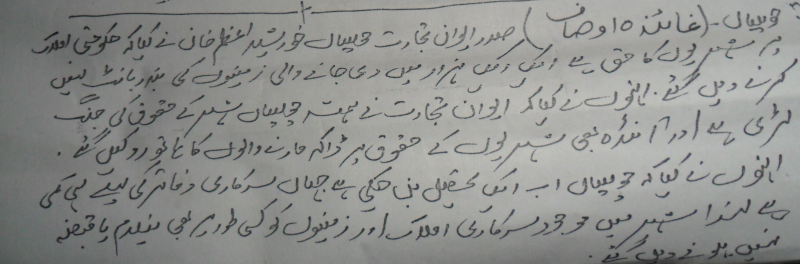 چوپیال۔(نمائندہ اوصاف) صدر ایوان تجارت چوپیال خورشید اعظم خان نے کہا کہ حکومتی املاک
پر شہریوں کا حق ہے ایک ایک ہزار میں دی جانے والی زمینوں کی بندر بانٹ نہیں
کرنے دیں گئے۔ انہوں نے کہا کہ ایوان تجارت نے ہمیشہ چوپیال شہر کے حقوق کی جنگ
لڑی ہے اور آئندہ بھی شہریوں کے حقوق پر ڈاکہ مارنے والوں کا ہاتھ روکیں گئے۔
انہوں نے کہا کہ چوپیال اب ایک تحصیل بن چکی ہے جہاں سرکاری دفاتر کی پہلے ہی کمی
ہے لہذا شہر میں موجود سرکاری املاک اور زمینوں کو کسی طور پر بھی نیلام یا قبضہ
نہیں ہونے دیں گئے۔